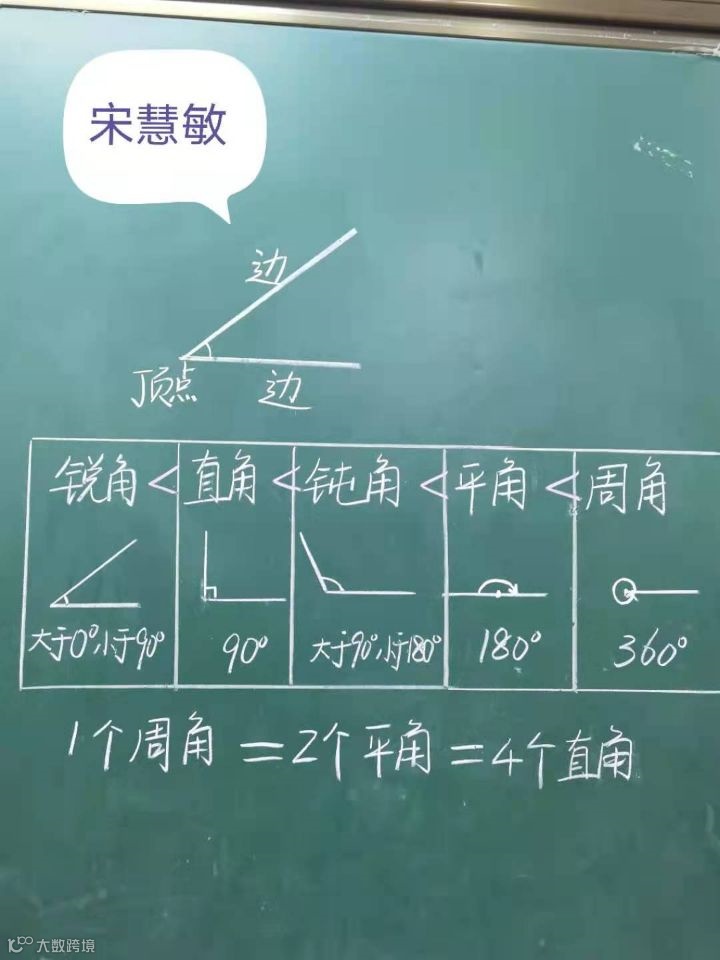 宋慧敏
边
顶点 边
锐角 < 直角 < 钝角 < 平角 < 周角
大于0°,小于90° 90° 大于90°,小于180° 180° 360°
1个周角 = 2个平角 = 4个直角
大数跨境